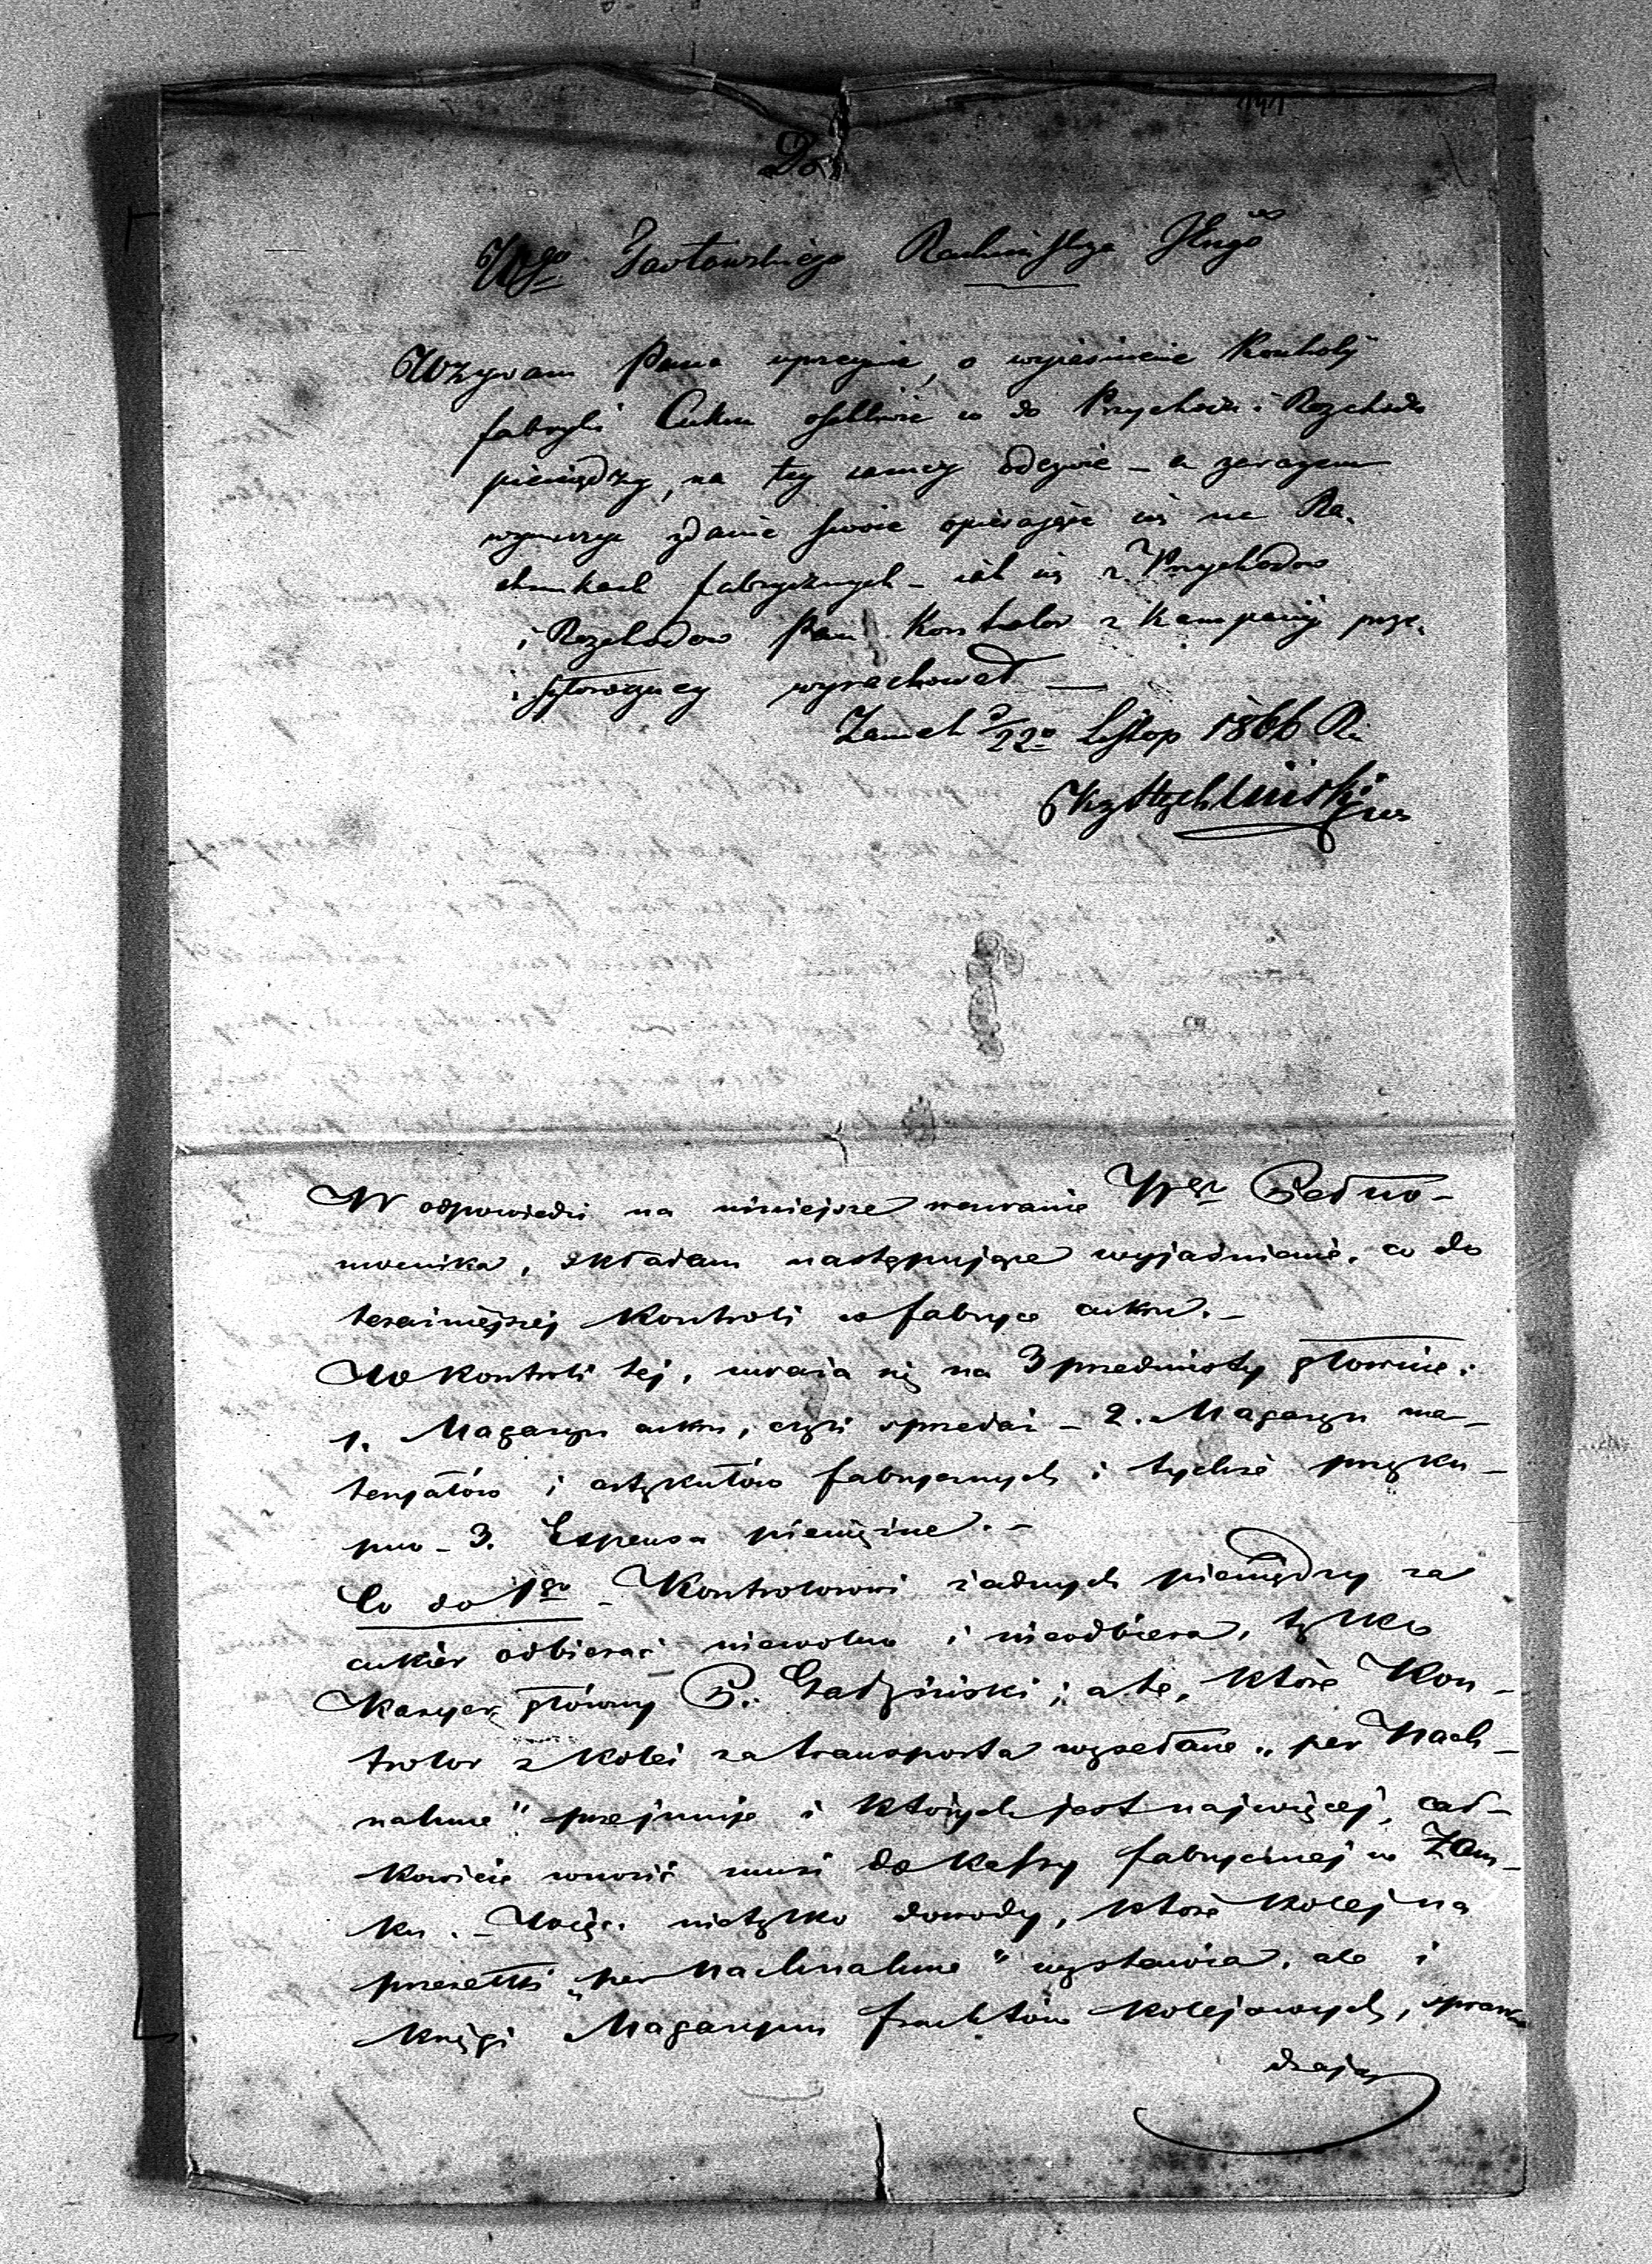 Do
Wgo Rachmistrza
Wzywam Pana uprzejmie, o wyjaśnienie Kontroly
fabryki Cukru osobliwie co do Przychodu i Rozchodu
pieniędzy, na tey samey odezwie – a zarazem
zdanie swoie opierając się na Ra-
chunkach fabrycznych – iak się z Przychodow
i Rozchodow Pan Kontrolor z Kampanij prze-
wyrachował —
Zamek d 22o Listop 1866 R.
W odpowiedzi na niniejsze wezwanie Wgo Pełno-
mocnika, składam następujące wyjaśnienie, co do
teraźniejszej Kontroli w fabryce cukru. –
W Kontroli tej, uważa się na 3 przedmioty głównie:
1. Magazyn cukru, czyli sprzedaż – 2. Magazyn ma-
teryałów i artykułów fabrycznych i tychże przyku-
pno – 3. Expensa pieniężne. –
Co do 1go – Kontrolorowi żadnych pieniędzy za
cukier odbierać niewolno i nieodbiera, tylko
Kasyer główny P. ; a te, które Kon-
trolor z Kolei za transporta wysełane „per Nach-
nahme" przejmuje i których jest najwięcej, cał-
kowicie wnosić musi do Kassy fabrycznej w Zam-
ku. – Więc nietylko dowody, które Kolej na
przesełki „per Nachnahme" wystawia, ale i
księgi Magazynu frachtów Kolejowych, spraw-
dzają